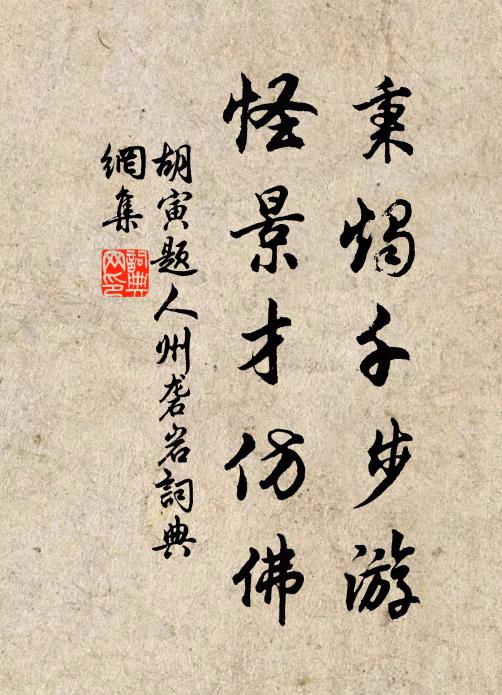 秉燭千步游
怪景才仿佛
胡寅題人州砻岩詞典
網集
詞典
网印